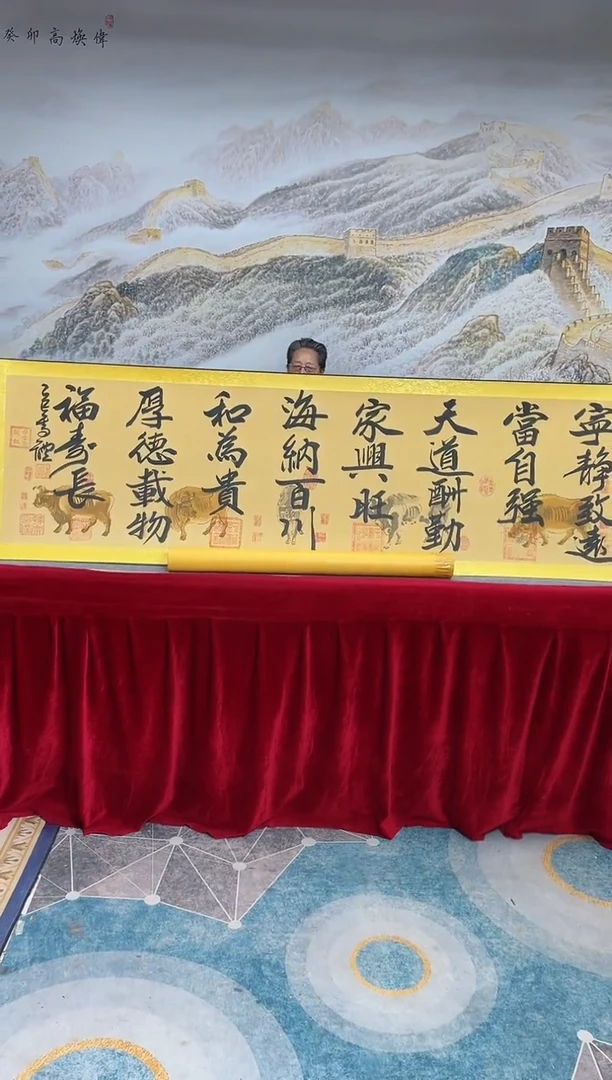 癸卯高焕偉
寧静致遠
當自强
天道酬勤
家興旺
海納百川
和為貴
厚德載物
福寿長